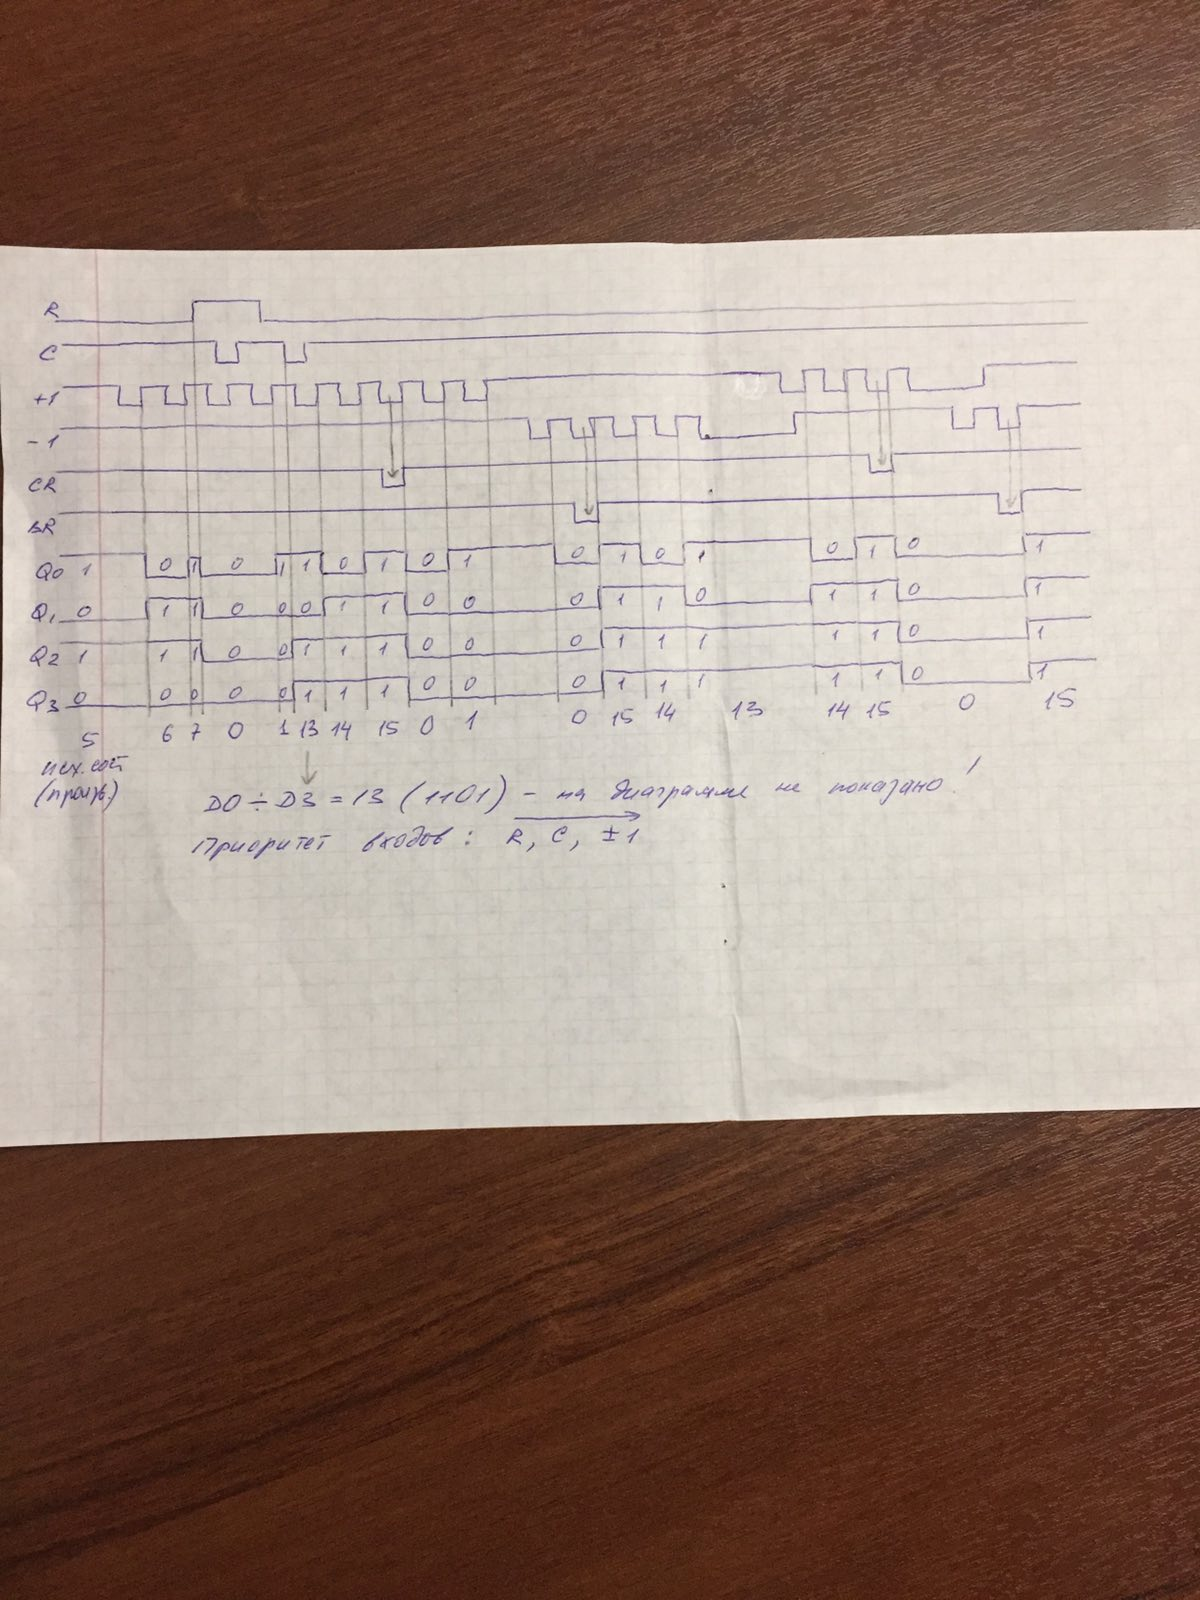 R
C
+1
-1
CR
BR
Q0 1 0 1 0 1 1 0 1 0 1 0 1 0 1 0 1 0 1
Q1 0 1 1 0 0 0 1 1 0 0 0 1 1 0 1 1 0 1
Q2 1 1 1 0 0 1 1 1 0 0 0 1 1 1 1 1 0 1
Q3 0 0 0 0 0 1 1 1 0 0 0 1 1 1 1 1 0 1
5 6 7 0 1 13 14 15 0 1 0 15 14 13 14 15 0 15
исх. сост
(произв.)
D0 ÷ D3 = 13 (1101) - на диаграмме не показано!
Приоритет входов: R, C, ±1